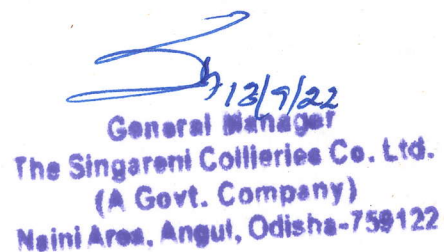 13/9/22
General Manager
The Singareni Collieries Co. Ltd.
(A Govt. Company)
Naini Area, Angul, Odisha-759122